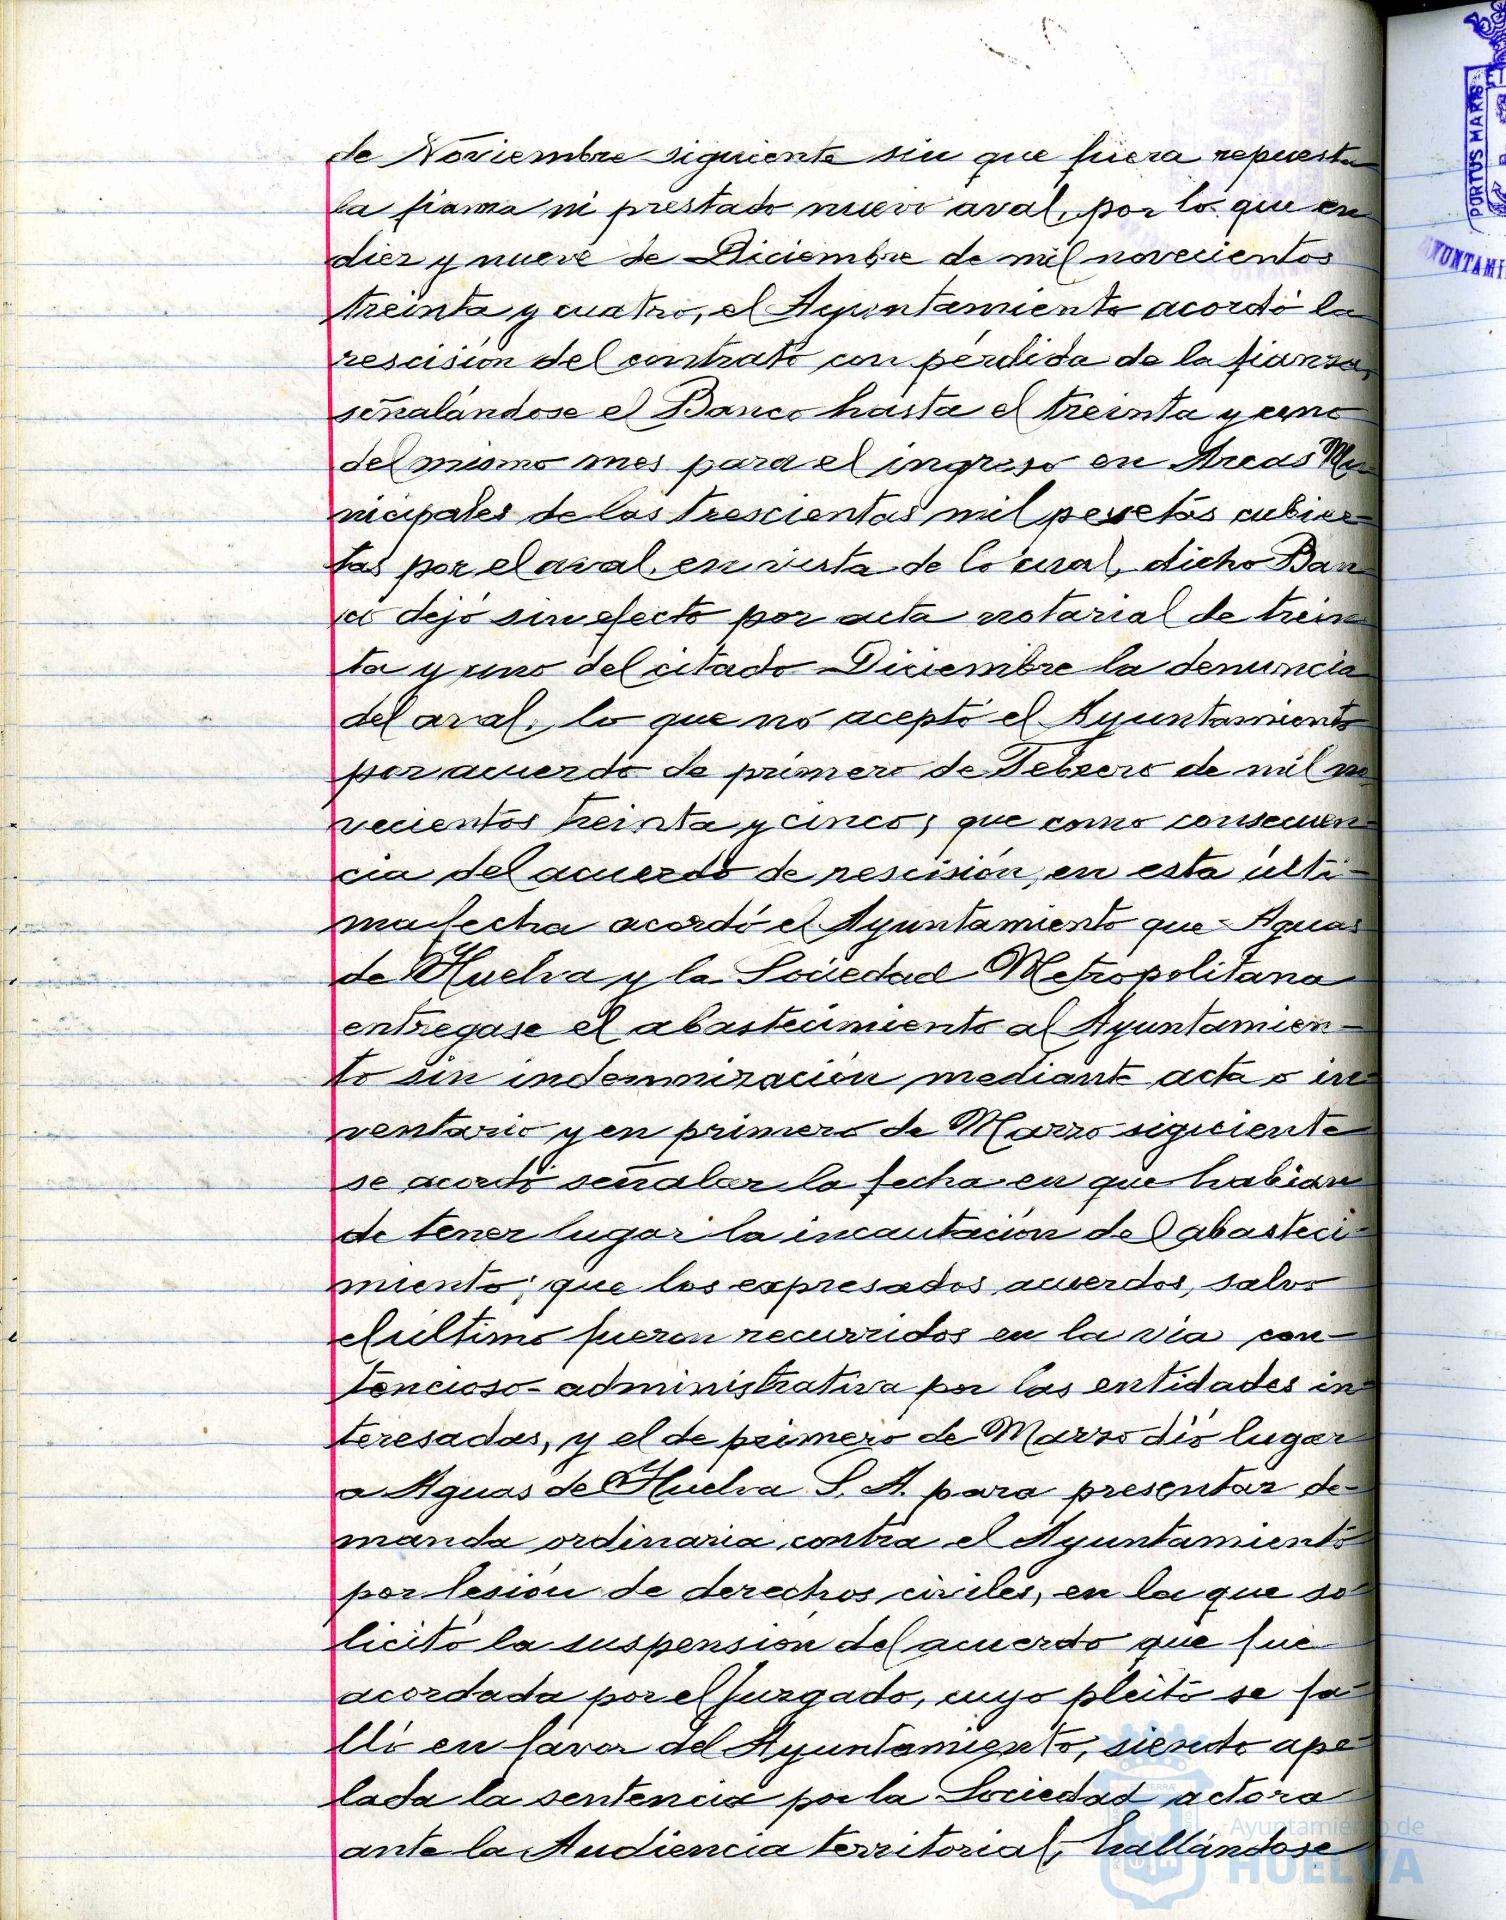 de Noviembre siguiente sin que fuera repuesta
la fianza ni prestado nuevo aval, por lo que en
diez y nueve de Diciembre de mil novecientos
treinta y cuatro, el Ayuntamiento acordó la
rescisión del contrato con pérdida de la fianza,
señalándose el Banco hasta el treinta y uno
del mismo mes para el ingreso en Arcas Mu
nicipales de las trescientas mil pesetas cubier-
tas por el aval, en vista de lo cual, dicho Ban
co dejó sin efecto por acta notarial de trein
ta y uno del citado Diciembre la denuncia
del aval, lo que no aceptó el Ayuntamiento
por acuerdo de primero de Febrero de mil no
vecientos treinta y cinco; que como consecuen
cia del acuerdo de rescisión, en esta últi-
ma fecha acordó el Ayuntamiento que Aguas
de Huelva y la Sociedad Metropolitana
entregase el abastecimiento al Ayuntamien-
to sin indemnización mediante acta o in-
ventario y en primero de Marzo siguiente
se acordó señalar la fecha en que habian
de tener lugar la incautación del abasteci-
miento; que los expresados acuerdos, salvo
el último fueron recurridos en la vía con-
tencioso-administrativa por las entidades in-
teresadas, y el de primero de Marzo dió lugar
a Aguas de Huelva S. A. para presentar de-
manda ordinaria contra el Ayuntamiento
por lesión de derechos civiles, en la que so
licitó la suspensión del acuerdo que fue
acordada por el Juzgado, cuyo pleito se fa-
lló en favor del Ayuntamiento, siendo ape-
lada la sentencia por la Sociedad actora
ante la Audiencia territorial, hallándose
PORTUS MARIS
AYUNTAMI
Ayuntamiento de
HUELVA